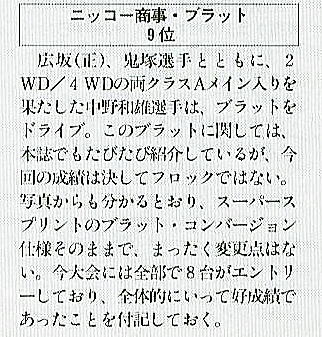 ニッコー商事・ブラット
9位
広坂(正)、鬼塚選手とともに、2
WD／4WDの両クラスAメイン入りを
果たした中野和雄選手は、ブラットを
ドライブ。このブラットに関しては、
本誌でもたびたび紹介しているが、今
回の成績は決してフロックではない。
写真からも分かるとおり、スーパース
プリントのブラット・コンバージョン
仕様そのままで、まったく変更点はな
い。今大会には全部で8台がエントリ
ーしており、全体的にいって好成績で
あったことを付記しておく。